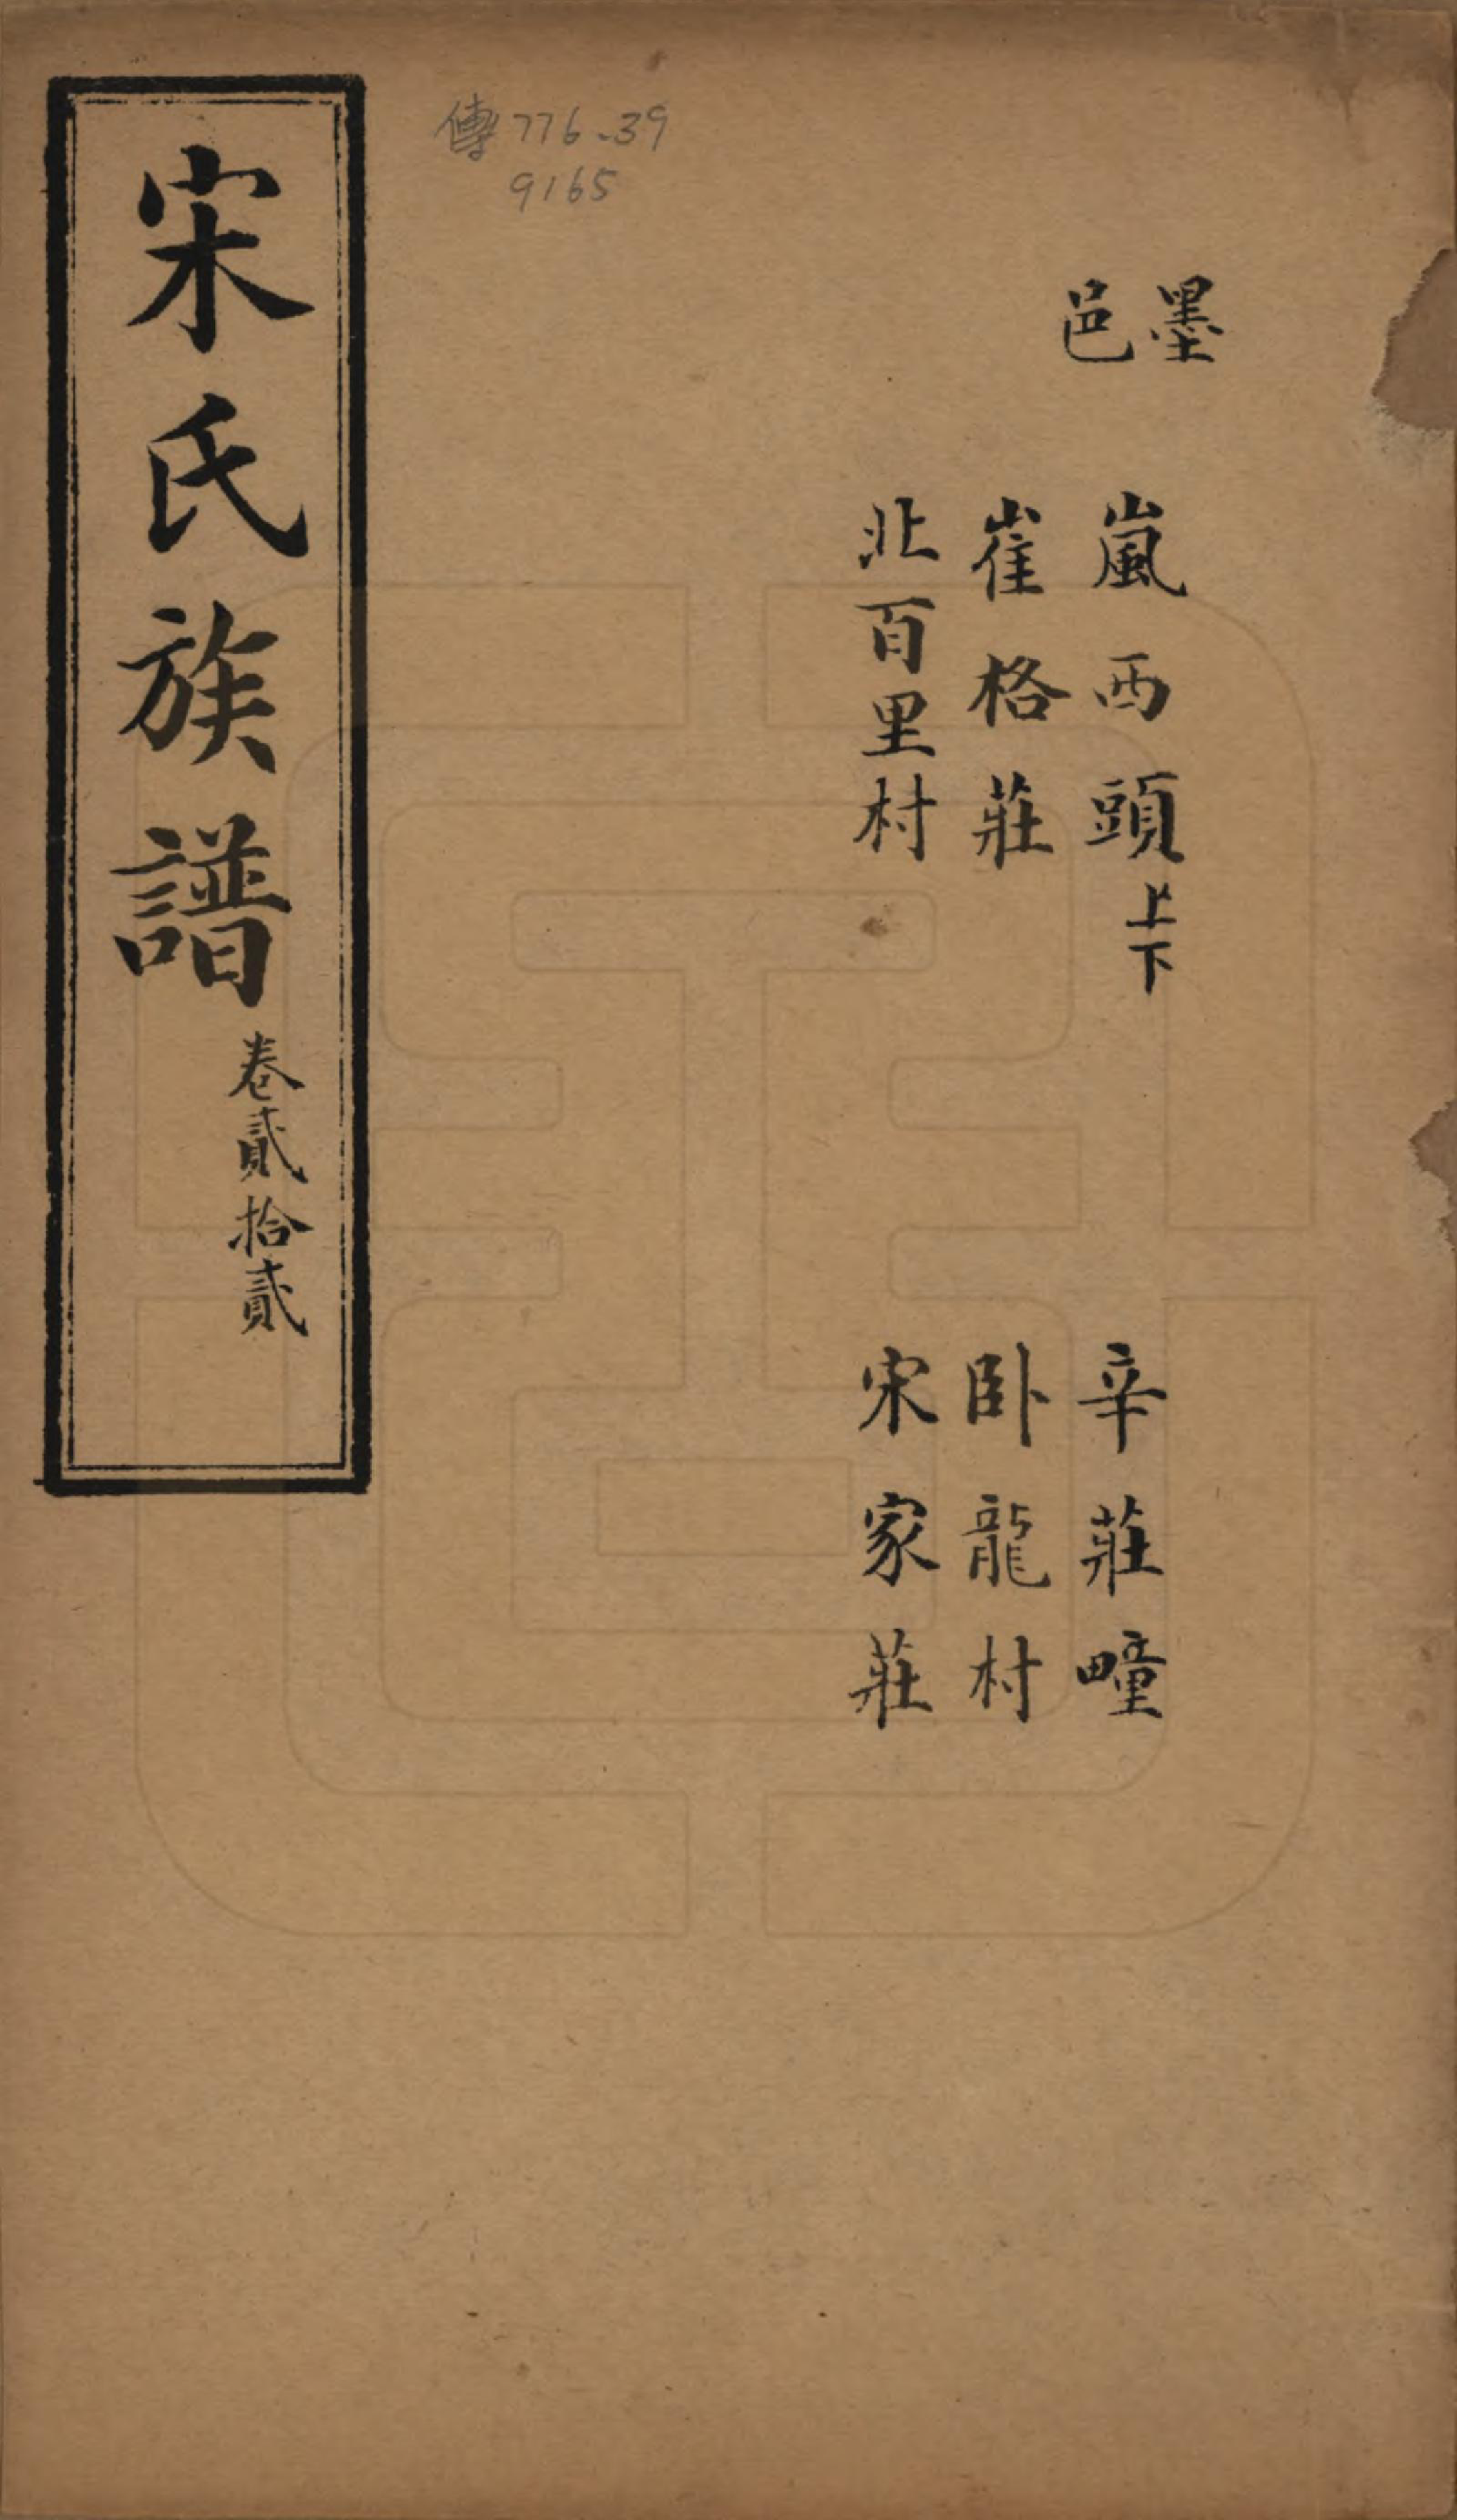 墨邑
嵐西頭上下
崔格莊
北百里村
辛莊疃
卧龍村
宋家莊
傳776.39
9165
宋氏族譜卷貳拾貳